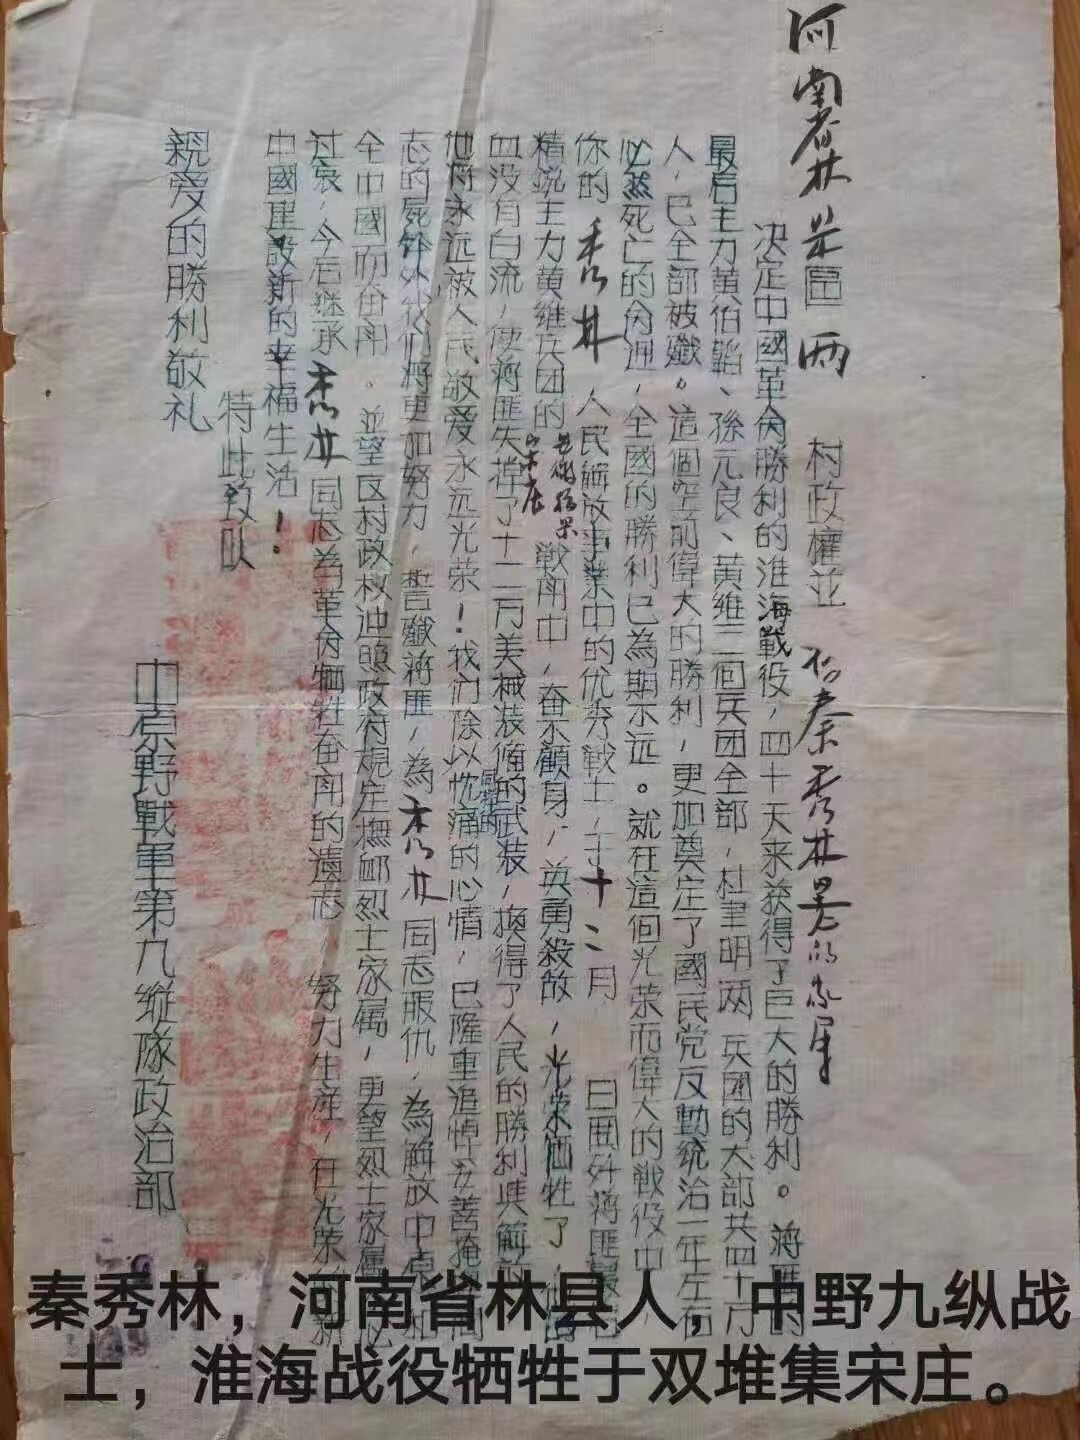 河南省林县 區 两 村政權並 秦秀林 的家屬
决定中國革命勝利的淮海戰役，四十天来获得了巨大的勝利。蔣匪的
最后主力黄伯韜、孫元良、黄維三個兵团全部，杜聿明两兵團的大部共四十万
人，已全部被殲。這個空前偉大的勝利，更加奠定了國民党反動統治一年左右
必然死亡的命運，全國的勝利已為期不远。就在這個光荣而偉大的戰役中，
你的 秀林 人民解放事業中的优秀戰士，于十二月 日围歼蔣匪最
精銳主力黄維兵团的 宋庄 戰鬥中，奋不顧身，英勇殺敌，光荣牺牲了，
血没有白流，使蔣匪失掉了十二万美械装俻的武装，換得了人民的勝利與解放
他將永远被人民敬爱永远光荣！我们除以忱痛的心情，已隆重追悼妥善掩
志的屍 外，我们將更加努力，誓殲蔣匪，為 秀林 同志服仇，為解放中原
全中國而奋鬥。並望区村政权迎照政府規定撫邮烈士家属，更望烈士家属
过哀，今后继承 秀林 同志為革命牺牲奋鬥的遺志，努力生産，在光荣 新
中國里設新的幸福生活！
特此致以
親爱的勝利敬礼
中原野戰軍第九縱隊政治部
秦秀林，河南省林县人，中野九纵战
士，淮海战役牺牲于双堆集宋庄。